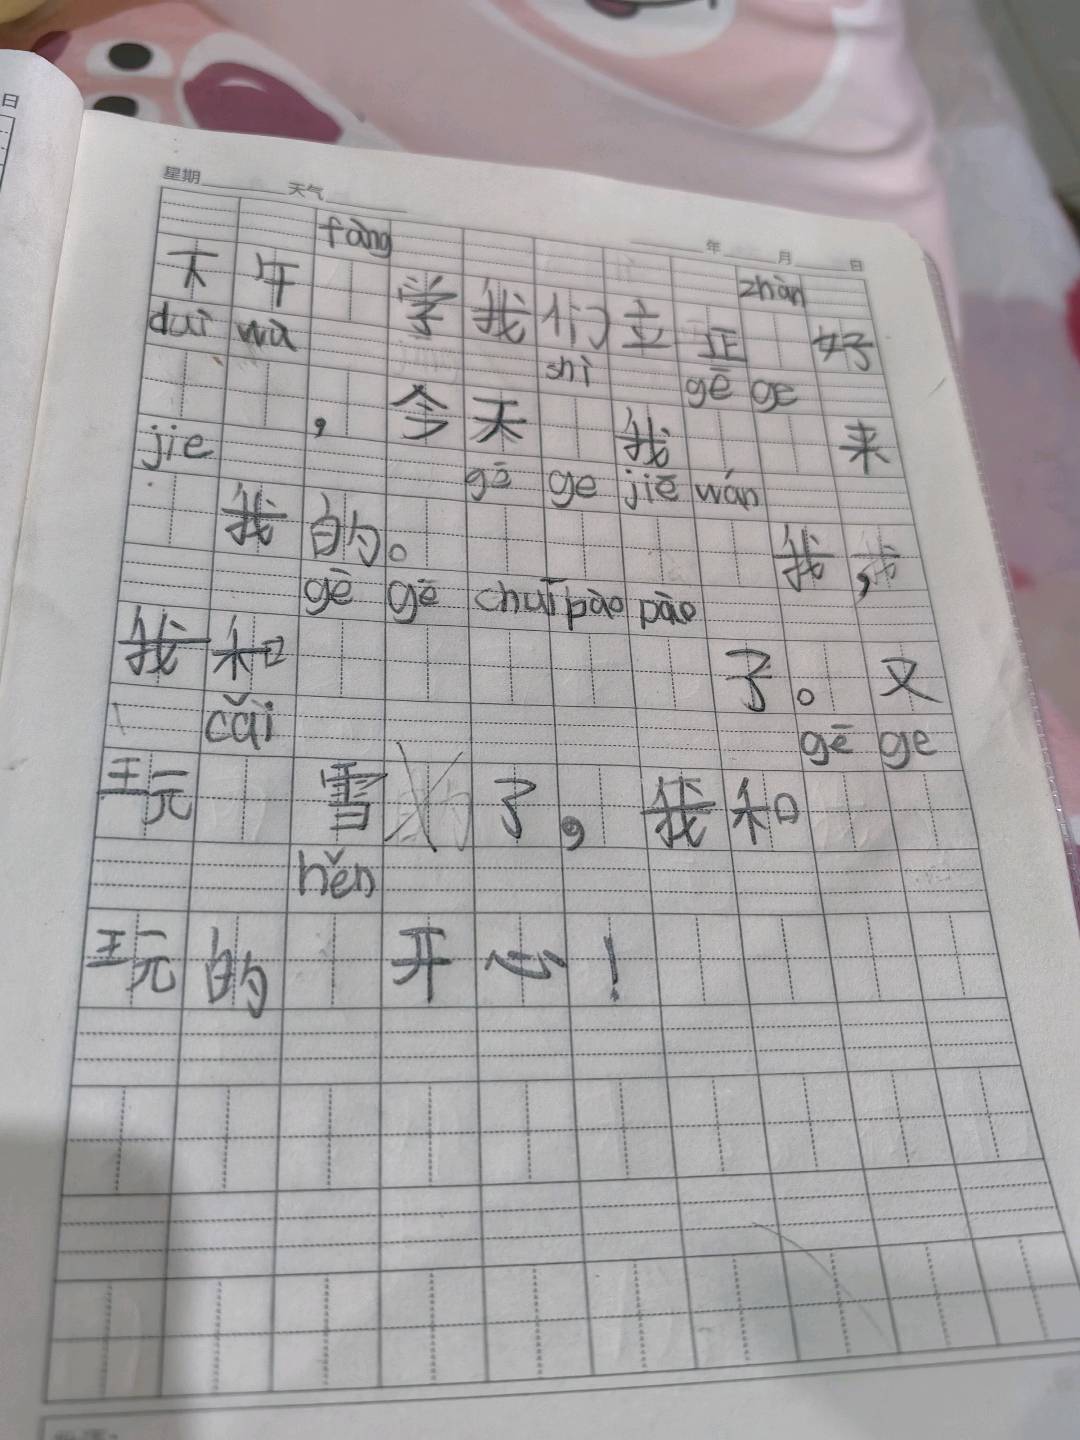 日
星期 天气
年 月 日
fàng zhàn
下午 学我们立正 好
duì wǔ shì gē ge
，今天 我 来
jiē gē ge jiē wán
我的。 我，我
gē gē chuī pào pào
我和 了。又
cǎi gē ge
玩 雪 了，我和
hěn
玩的 开心！